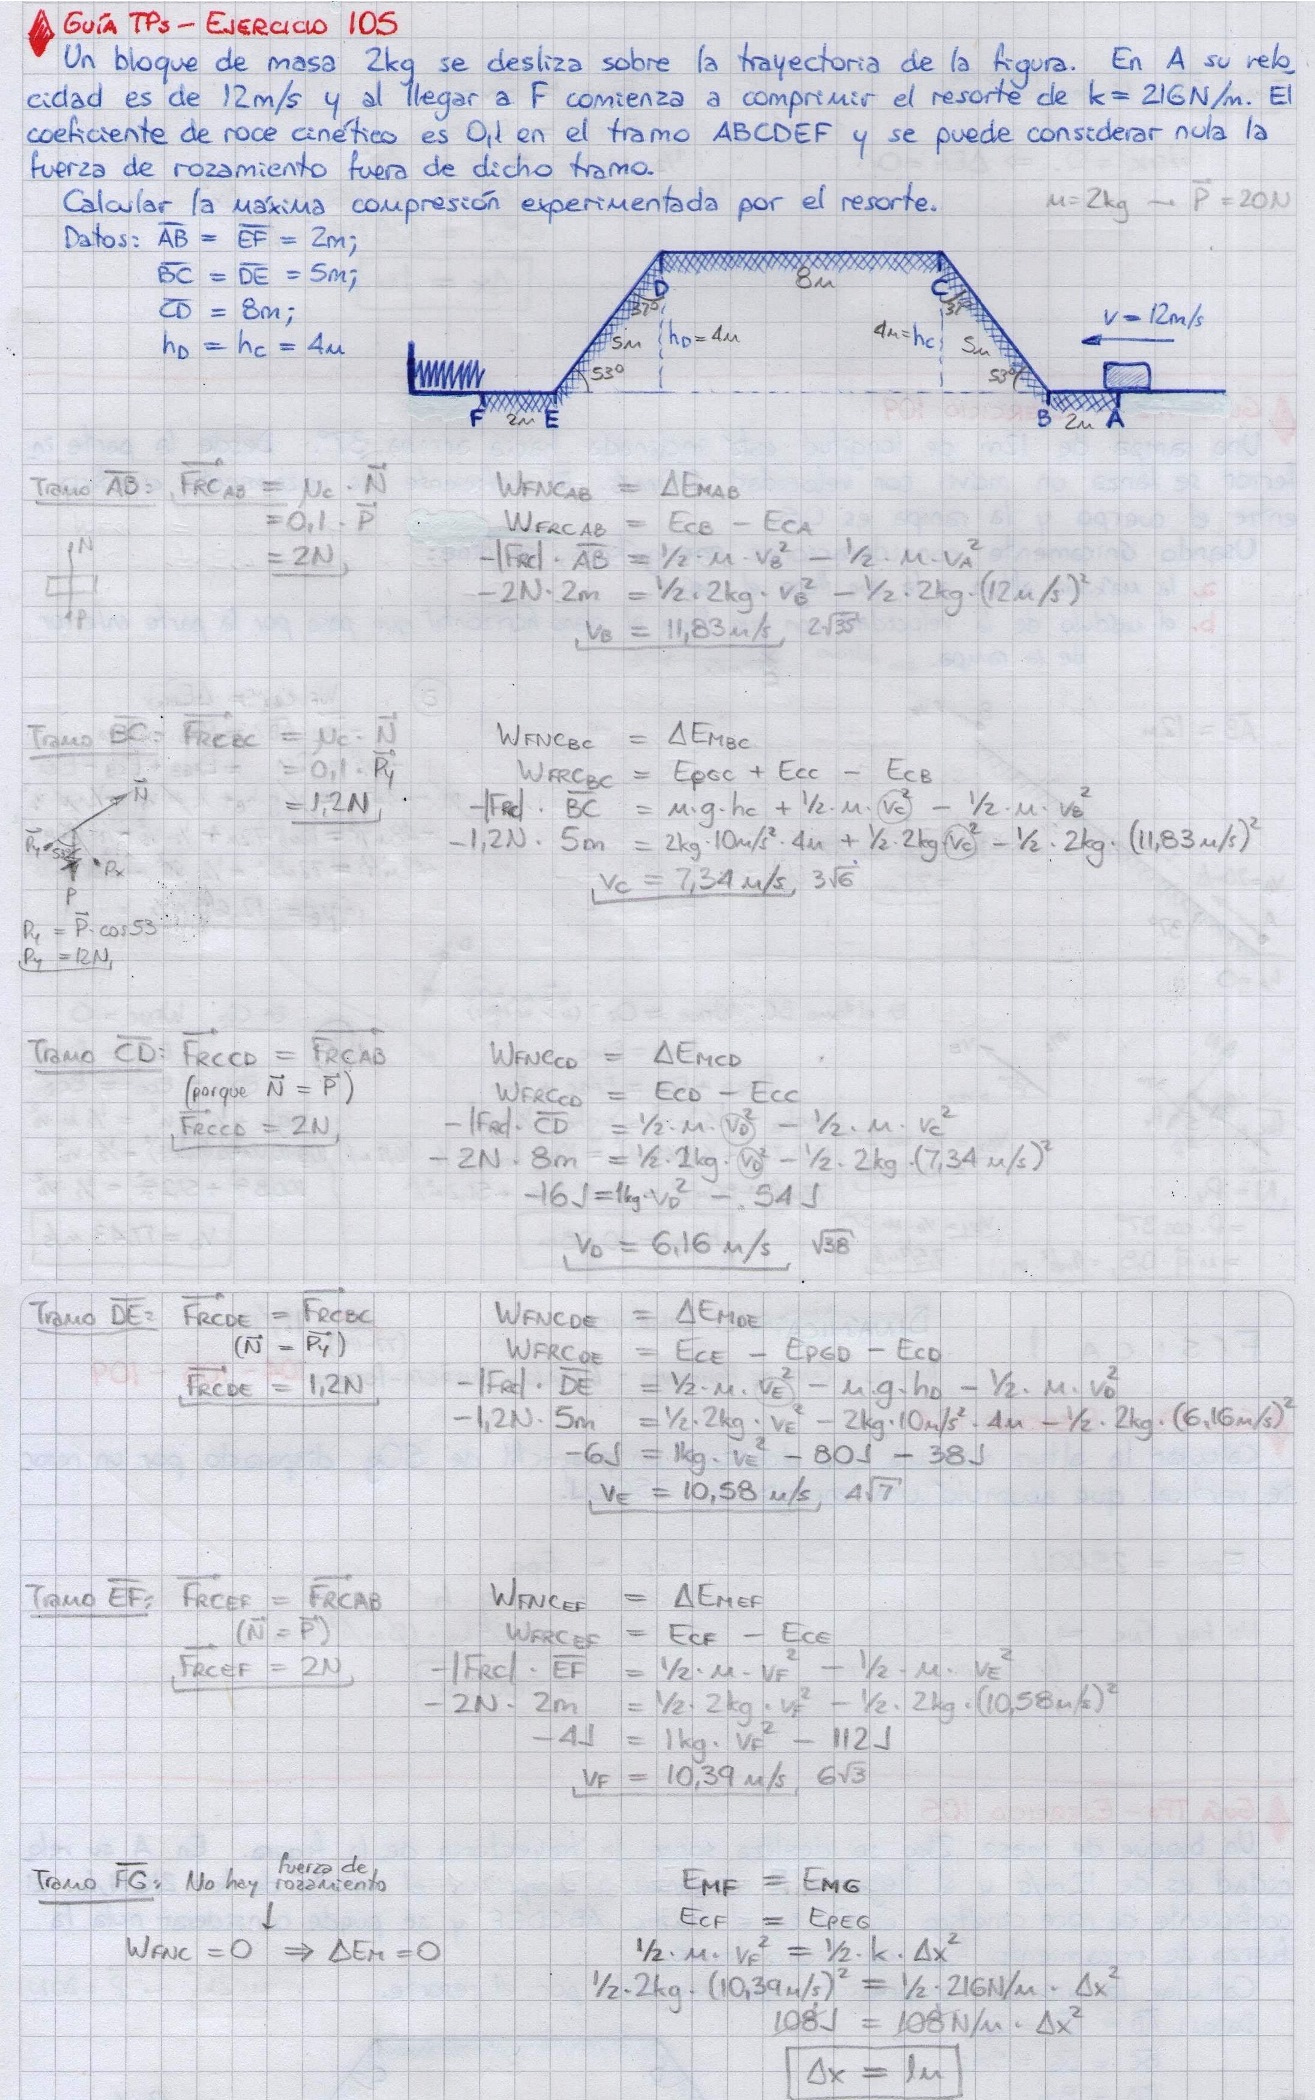 GUÍA TPs - EJERCICIO 105
Un bloque de masa 2kg se desliza sobre la trayectoria de la figura. En A su velo
cidad es de 12m/s y al llegar a F comienza a comprimir el resorte de k = 216N/m. El
coeficiente de roce cinético es 0,1 en el tramo ABCDEF y se puede considerar nula la
fuerza de rozamiento fuera de dicho tramo.
Calcular la máxima compresión experimentada por el resorte.
m = 2kg → P = 20N
Datos: AB = EF = 2m;
BC = DE = 5m;
CD = 8m;
hD = hC = 4m
8m
D
C
37°
37°
5m
hD = 4m
4m = hC
5m
v = 12m/s
53°
53°
F
2m
E
B
2m
A
Tramo AB: FRCAB = μc · N
= 0,1 · P
= 2N
N
P
WFNCAB = ΔEMAB
WFRCAB = ECB - ECA
-|FRC| · AB = 1/2 · m · vB² - 1/2 · m · vA²
-2N · 2m = 1/2 · 2kg · vB² - 1/2 · 2kg · (12m/s)²
vB = 11,83 m/s 2√35
Tramo BC: FRCBC = μc · N
= 0,1 · Py
= 1,2N
N
Py
53°
Px
P
Py = P · cos 53
Py = 12N
WFNCBC = ΔEMBC
WFRCBC = EPGC + ECC - ECB
-|FRC| · BC = m · g · hC + 1/2 · m · vC² - 1/2 · m · vB²
-1,2N · 5m = 2kg · 10m/s² · 4m + 1/2 · 2kg vC² - 1/2 · 2kg · (11,83 m/s)²
vC = 7,34 m/s 3√6
Tramo CD: FRCCD = FRCAB
(porque N = P)
FRCCD = 2N
WFNCCD = ΔEMCD
WFRCCD = ECD - ECC
-|FRC| · CD = 1/2 · m · vD² - 1/2 · m · vC²
-2N · 8m = 1/2 · 2kg · vD² - 1/2 · 2kg · (7,34 m/s)²
-16J = 1kg · vD² - 54J
vD = 6,16 m/s √38
Tramo DE: FRCDE = FRCBC
(N = Py)
FRCDE = 1,2N
WFNCDE = ΔEMDE
WFRCDE = ECE - EPGD - ECD
-|FRC| · DE = 1/2 · m · vE² - m · g · hD - 1/2 · m · vD²
-1,2N · 5m = 1/2 · 2kg · vE² - 2kg · 10m/s² · 4m - 1/2 · 2kg · (6,16m/s)²
-6J = 1kg · vE² - 80J - 38J
vE = 10,58 m/s 4√7
Tramo EF: FRCEF = FRCAB
(N = P)
FRCEF = 2N
WFNCEF = ΔEMEF
WFRCEF = ECF - ECE
-|FRC| · EF = 1/2 · m · vF² - 1/2 · m · vE²
-2N · 2m = 1/2 · 2kg · vF² - 1/2 · 2kg · (10,58m/s)²
-4J = 1kg · vF² - 112J
vF = 10,39 m/s 6√3
Tramo FG: No hay fuerza de rozamiento
↓
WFNC = 0 ⇒ ΔEM = 0
EMF = EMG
ECF = EPEG
1/2 · m · vF² = 1/2 · k · Δx²
1/2 · 2kg · (10,39m/s)² = 1/2 · 216N/m · Δx²
108J = 108N/m · Δx²
Δx = 1m